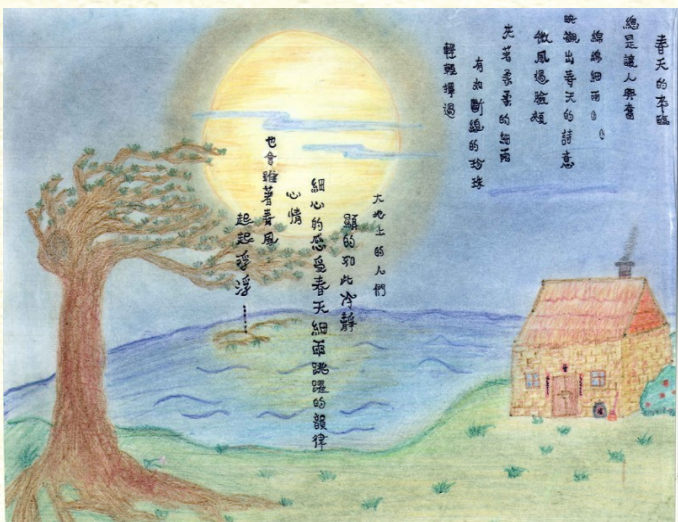 春天的來臨
總是讓人興奮
綿綿細雨
映襯出春天的詩意
微風過臉頰
夾著柔柔的細雨
有如斷線的珍珠
輕輕彈過
大地上的人們
顯的如此冷靜
細心的感受春天細雨跳躍的韻律
心情
也會隨著春風
起起浮浮………